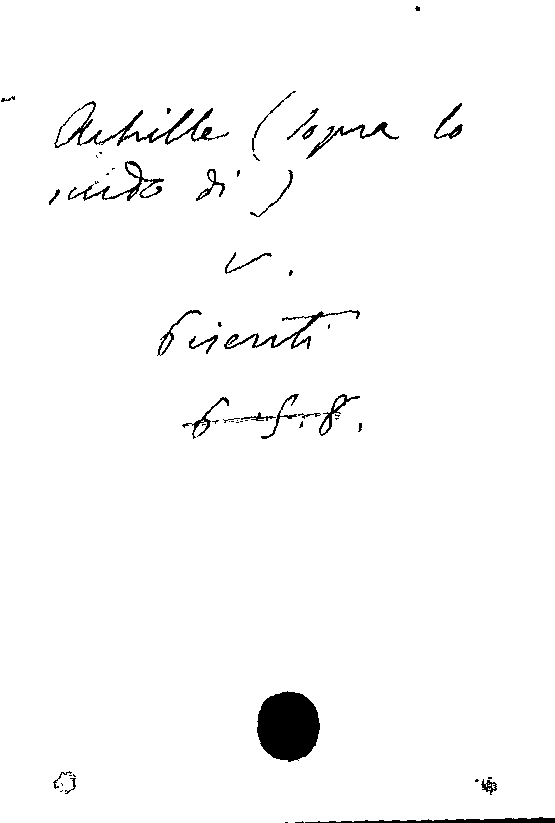 Achille (sopra lo
scudo di)
v.
Bisenti
6-5.8.